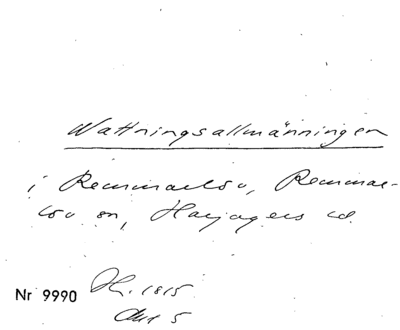 Wattningsallmänningen
i Remmarlöv, Remmar-
löv sn, Harjagers hd.
Nr 9990
1815
Akt 5